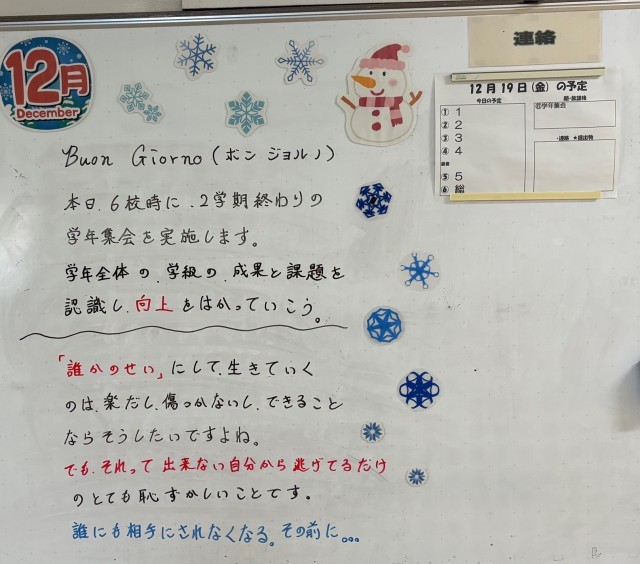 12月
December
連絡
12月19日(金)の予定
今日の予定
① 1
② 2
③ 3
④ 4
⑤ 5
⑥ 総
⑥学年集会
Buon Giorno (ボン ジョルノ)
本日、6校時に、2学期終わりの
学年集会を実施します。
学年全体の、学級の、成果と課題を
認識し、向上をはかっていこう。
「誰かのせい」にして、生きていく
のは、楽だし、傷つかないし、できること
ならそうしたいですよね。
でも、それって出来ない自分から逃げてるだけ
のとても恥ずかしいことです。
誰にも相手にされなくなる。その前に...